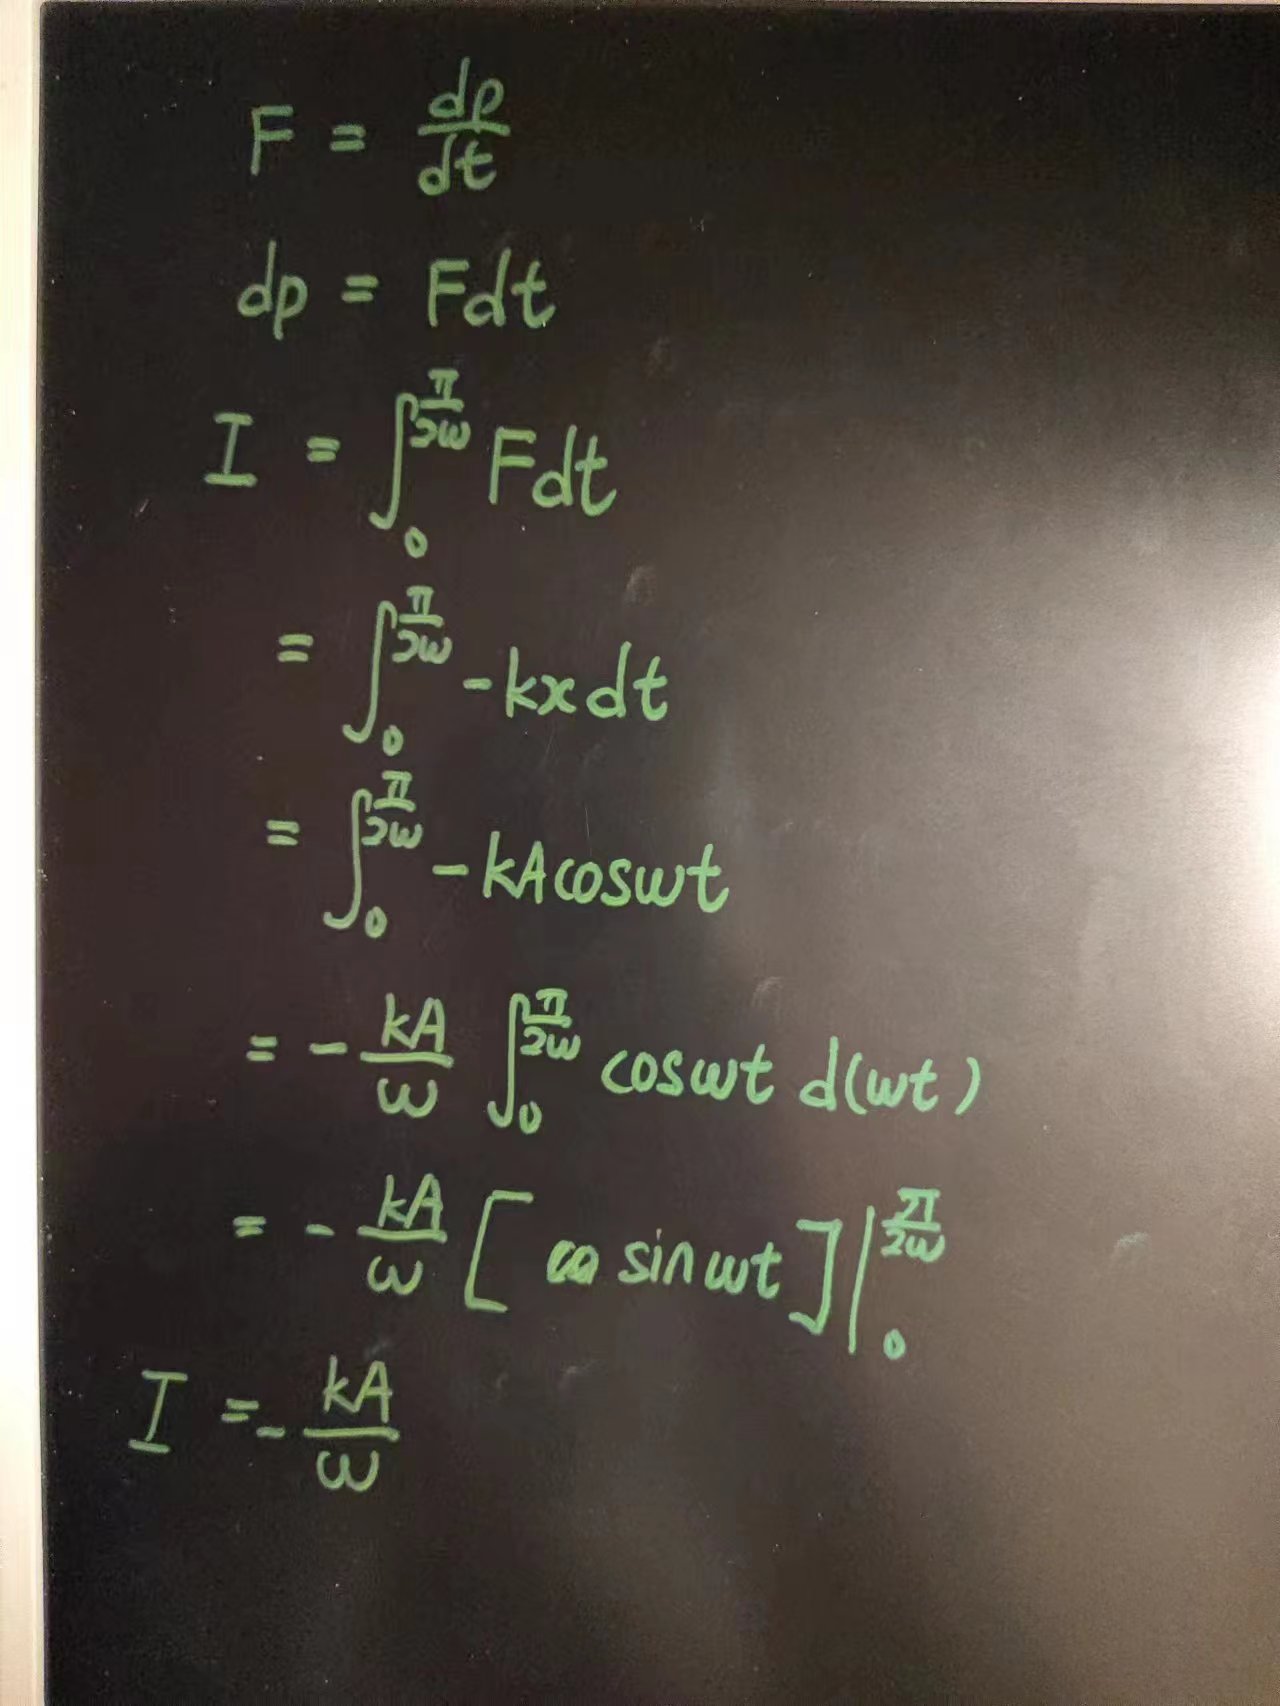 F = dp/dt
dp = Fdt
I = ∫₀^(π/2ω) Fdt
= ∫₀^(π/2ω) -kxdt
= ∫₀^(π/2ω) -kAcosωt
= - kA/ω ∫₀^(π/2ω) cosωt d(ωt)
= - kA/ω [ sinωt ]|₀^(π/2ω)
I = - kA/ω